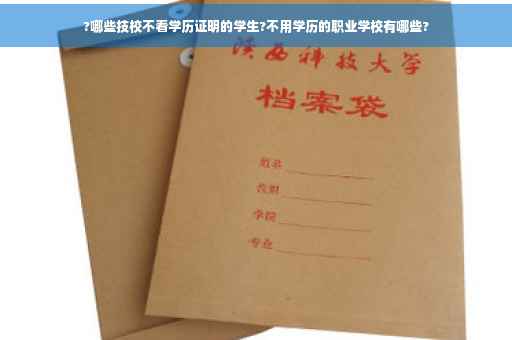 ?哪些技校不看学历证明的学生?不用学历的职业学校有哪些?
陕西科技大学
档案袋
姓名
学院
专业